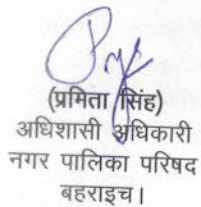 (प्रमिता सिंह)
अधिशासी अधिकारी
नगर पालिका परिषद
बहराइच।